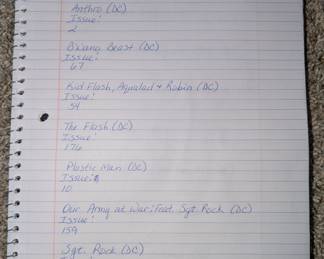 Anthro (DC)
Issue:
2
B'wana Beast (DC)
Issue:
67
Kid Flash, Aqualad & Robin (DC)
Issue:
54
The Flash (DC)
Issue:
176
Plastic Man (DC)
Issue:
10
Our Army at War: Feat. Sgt. Rock (DC)
Issue:
159
Sgt. Rock (DC)